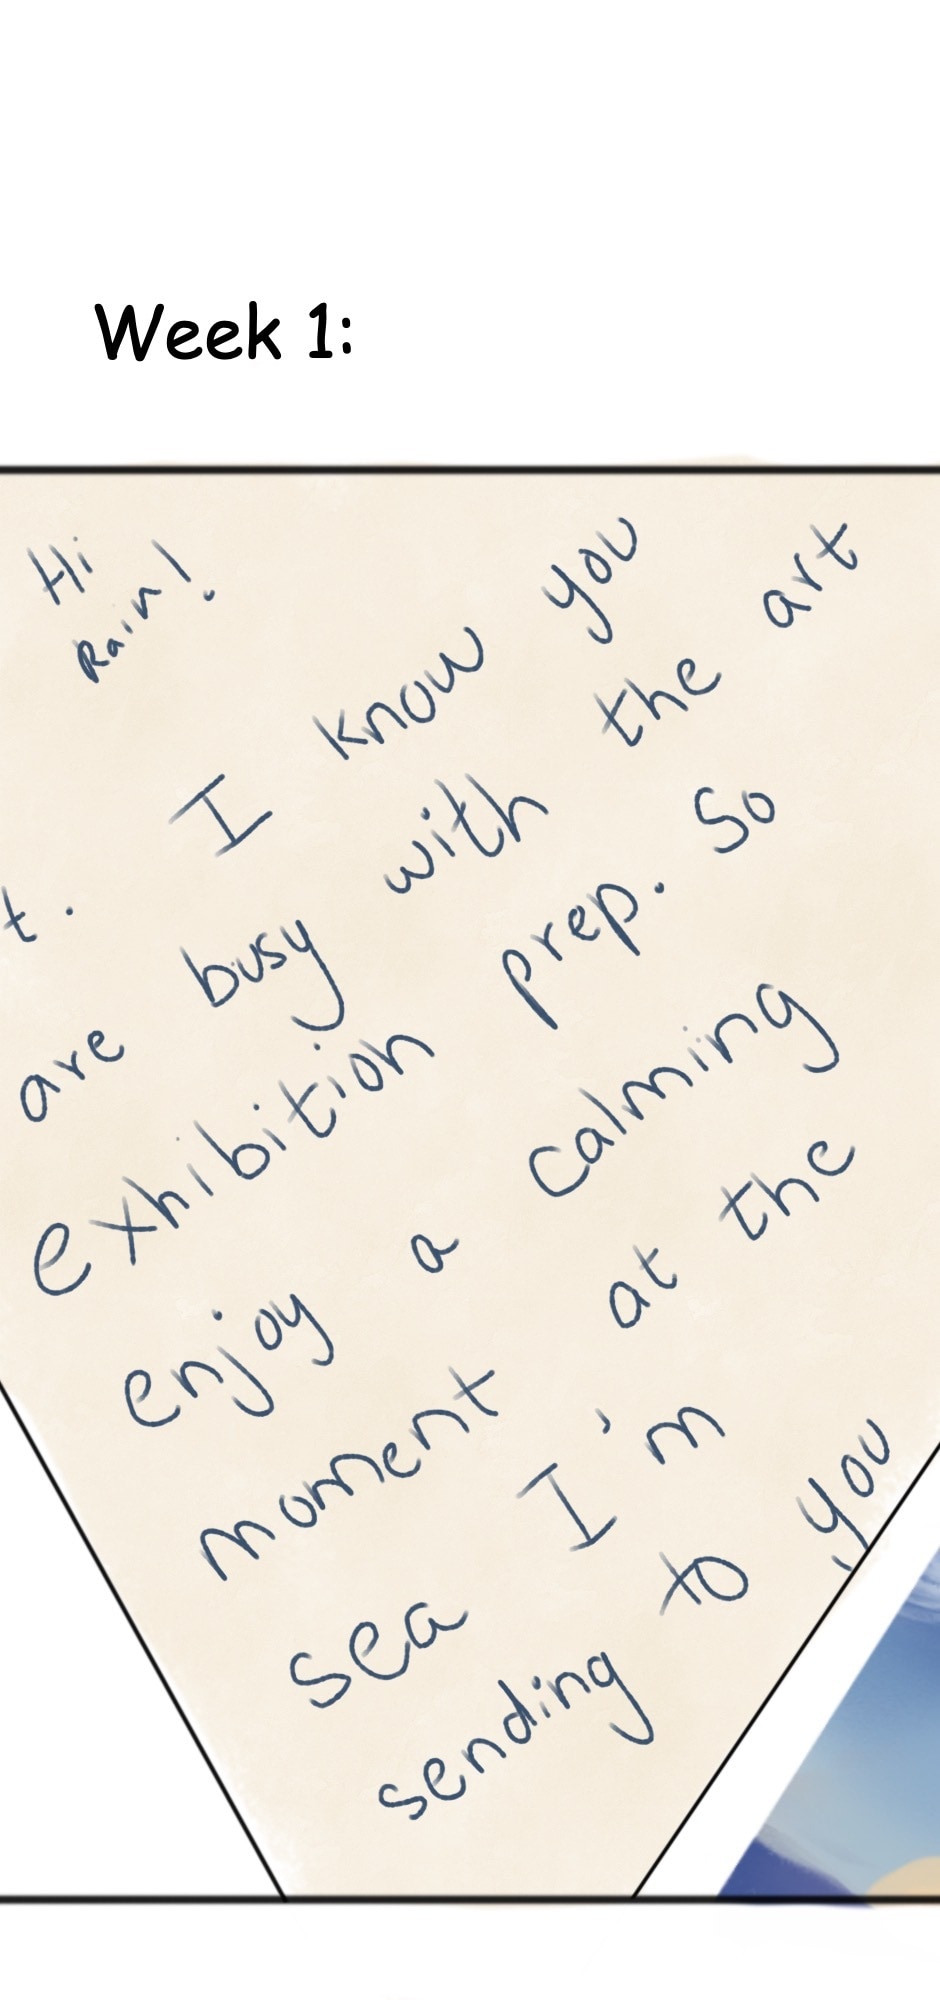 Week 1:
Hi
Rain!
t.
I know you
are busy with the art
exhibition prep. So
enjoy a calming
moment at the
sea I'm
sending to you